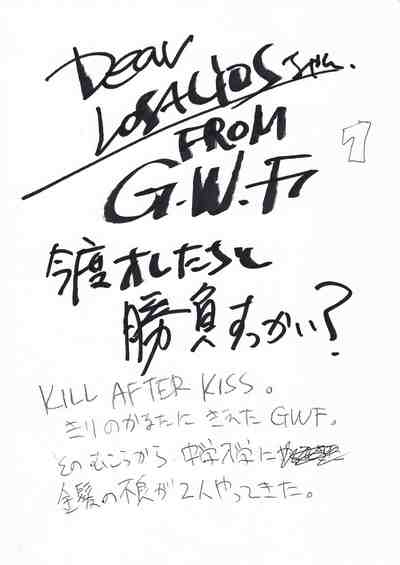 Dear
LOSALIOS Inc.
FROM
G.W.F
1
今度オレたちと
勝負すっかい?
KILL AFTER KISS。
きりのかなたに きえた GWF。
そのむこうから 中学入学に
金髪の不良が2人やってきた。